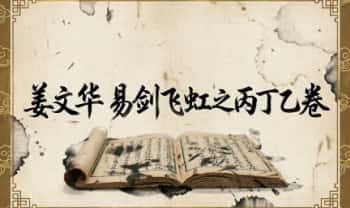 姜文华 易剑飞虹之丙丁乙卷